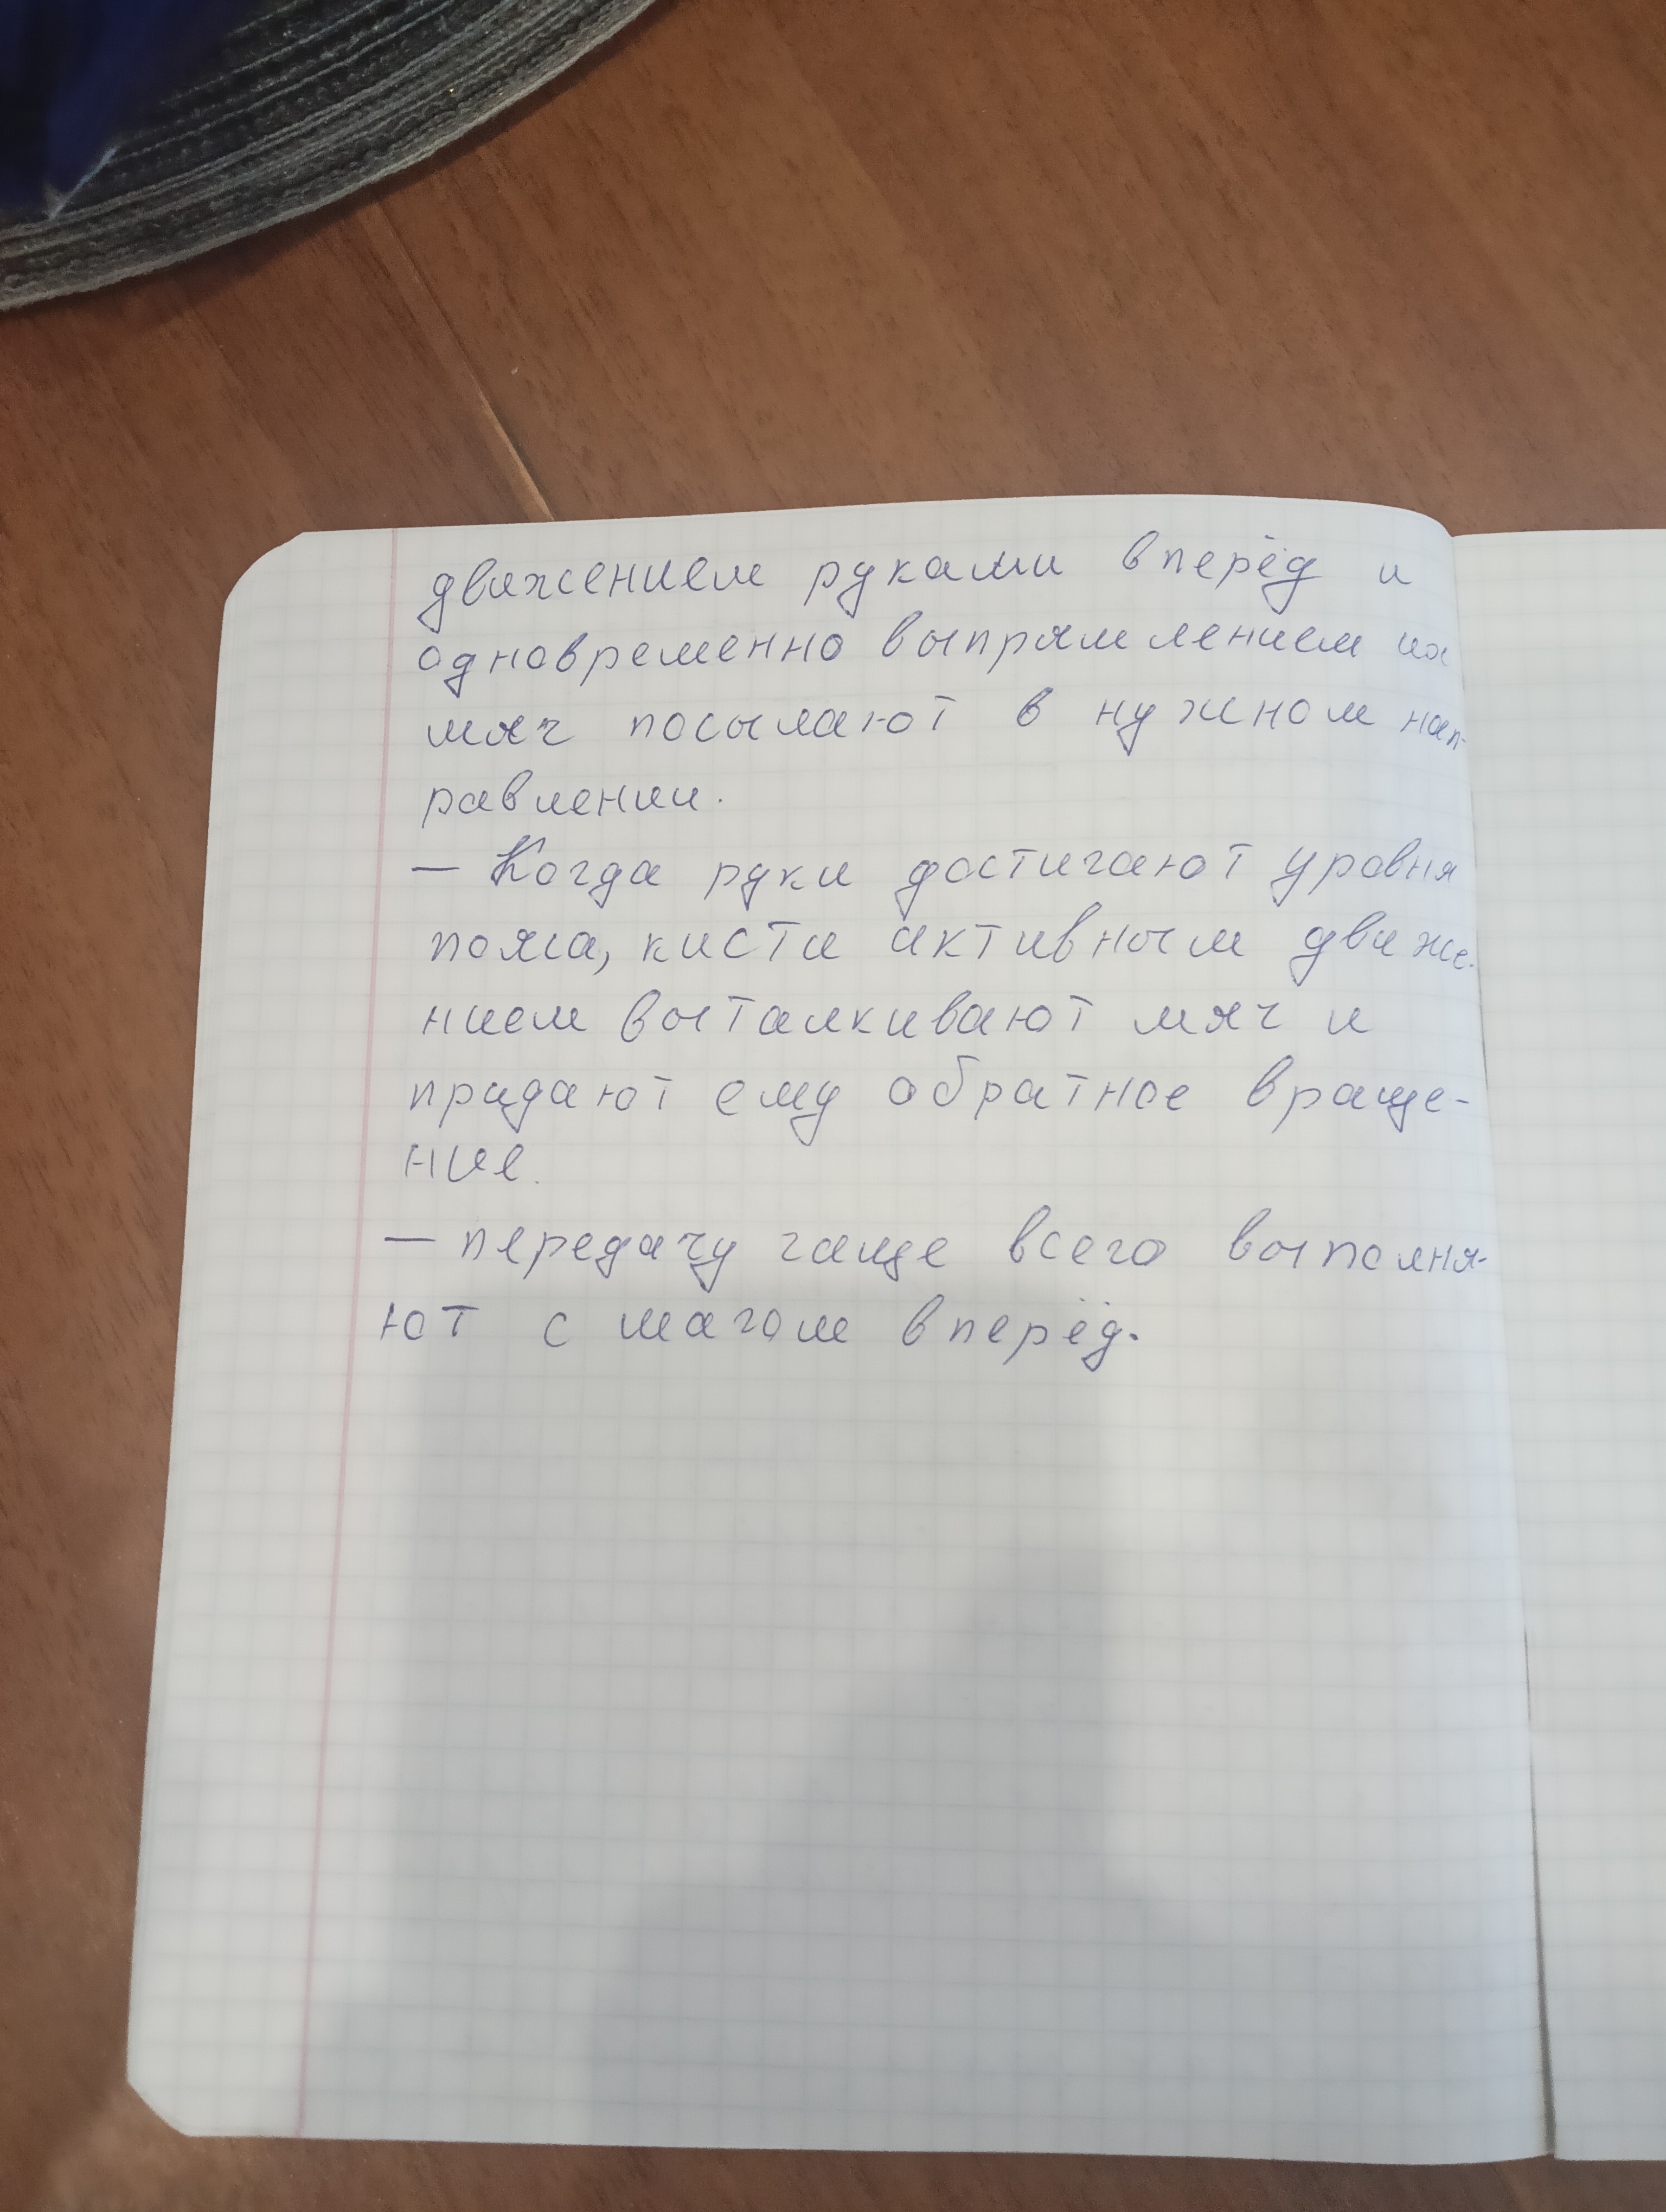 движением руками вперёд и
одновременно выпрямлением их
мяч посылают в нужном нап-
равлении.
— Когда руки достигают уровня
пояса, кисти активным движе-
нием выталкивают мяч и
придают ему обратное враще-
ние.
— передачу чаще всего выполня-
ют с шагом вперёд.